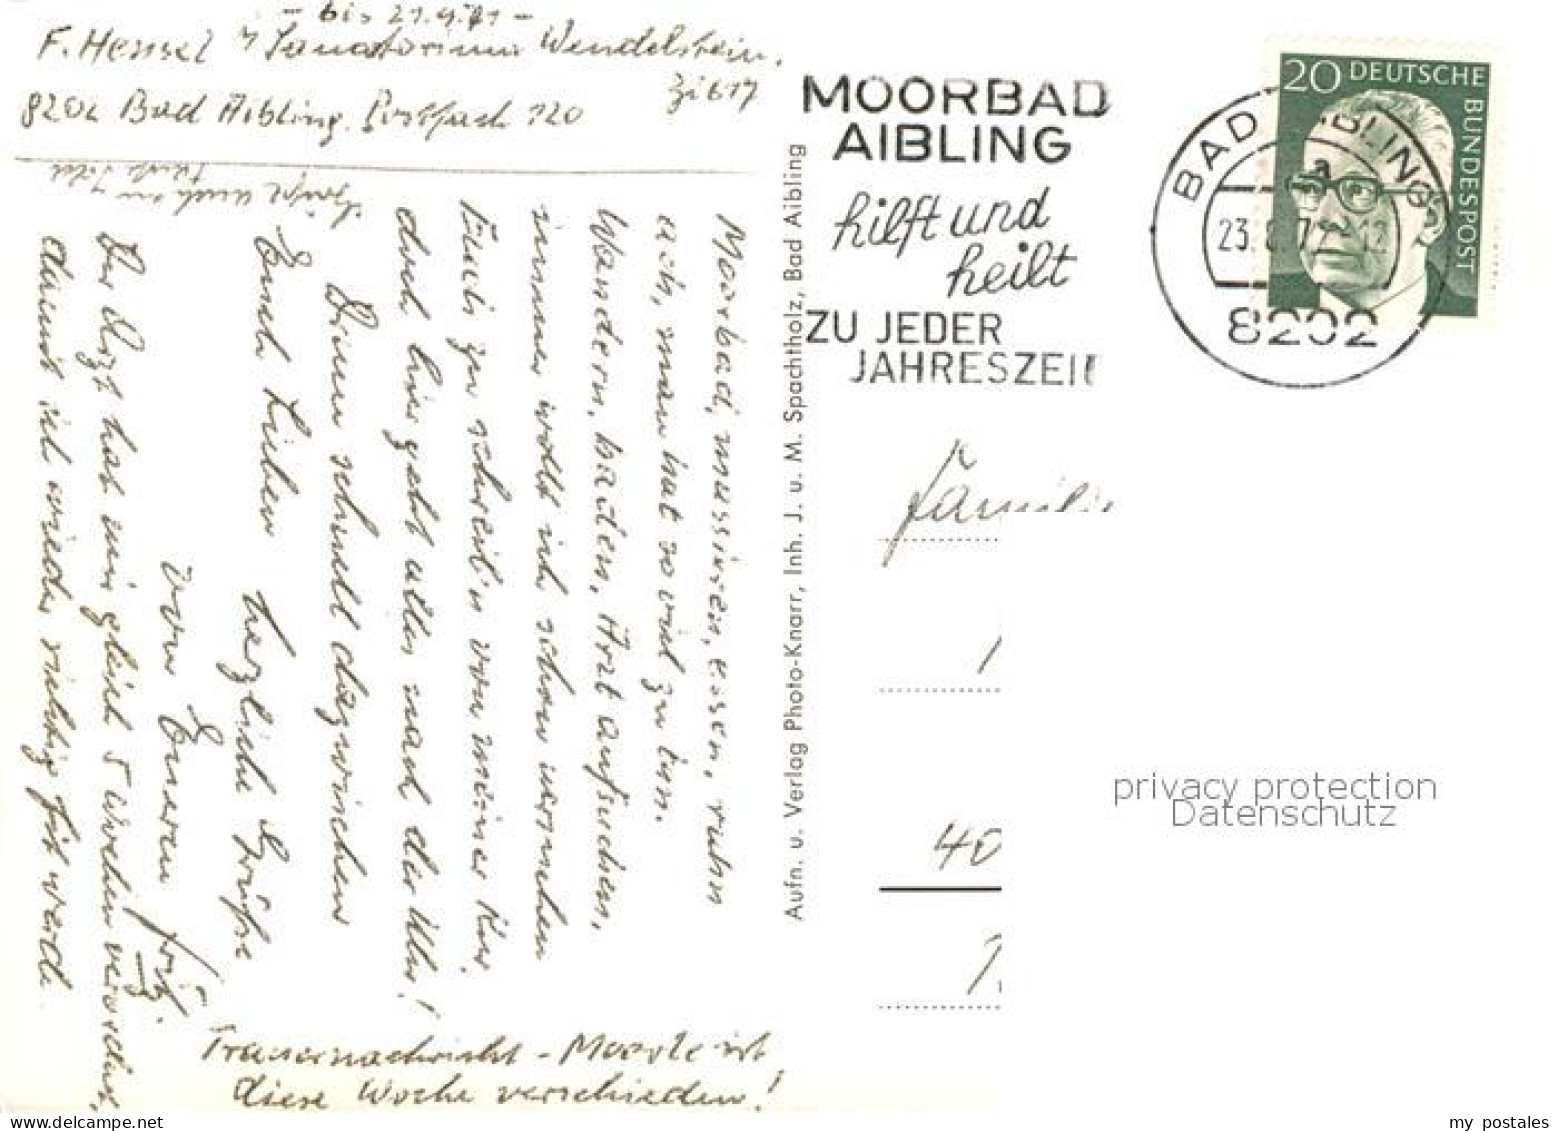 - bis 21.9.71 -
F. Hensel Sanatorium Wendelstein.
8202 Bad Aibling. Postfach 120
Zi 617
Moorbad, massieren, essen, ruhn
ach, man hat so viel zu tun.
Wandern, baden, Arzt aufsuchen,
immer wollt ich schon versuchen
Euch zu schreib'n von meiner Kur.
doch hier geht alles nach der Uhr!
Drum schnell dazwischen
Euch Lieben herzliche Grüße
von Eurem Fritz
Der Arzt hat mir gleich 5 Wochen verschrieb.
damit ich wieder richtig fit werde.
Grüße auch an
Trauernachricht - Moorle ist
diese Woche verschieden!
Aufn. u. Verlag Photo-Knarr, Inh. J. u. M. Spachtholz, Bad Aibling
MOORBAD
AIBLING
hilft und
heilt
ZU JEDER
JAHRESZEIT
BAD AIBLING
a
8202
20 DEUTSCHE
BUNDESPOST
Familie
40
privacy protection
Datenschutz
my postales